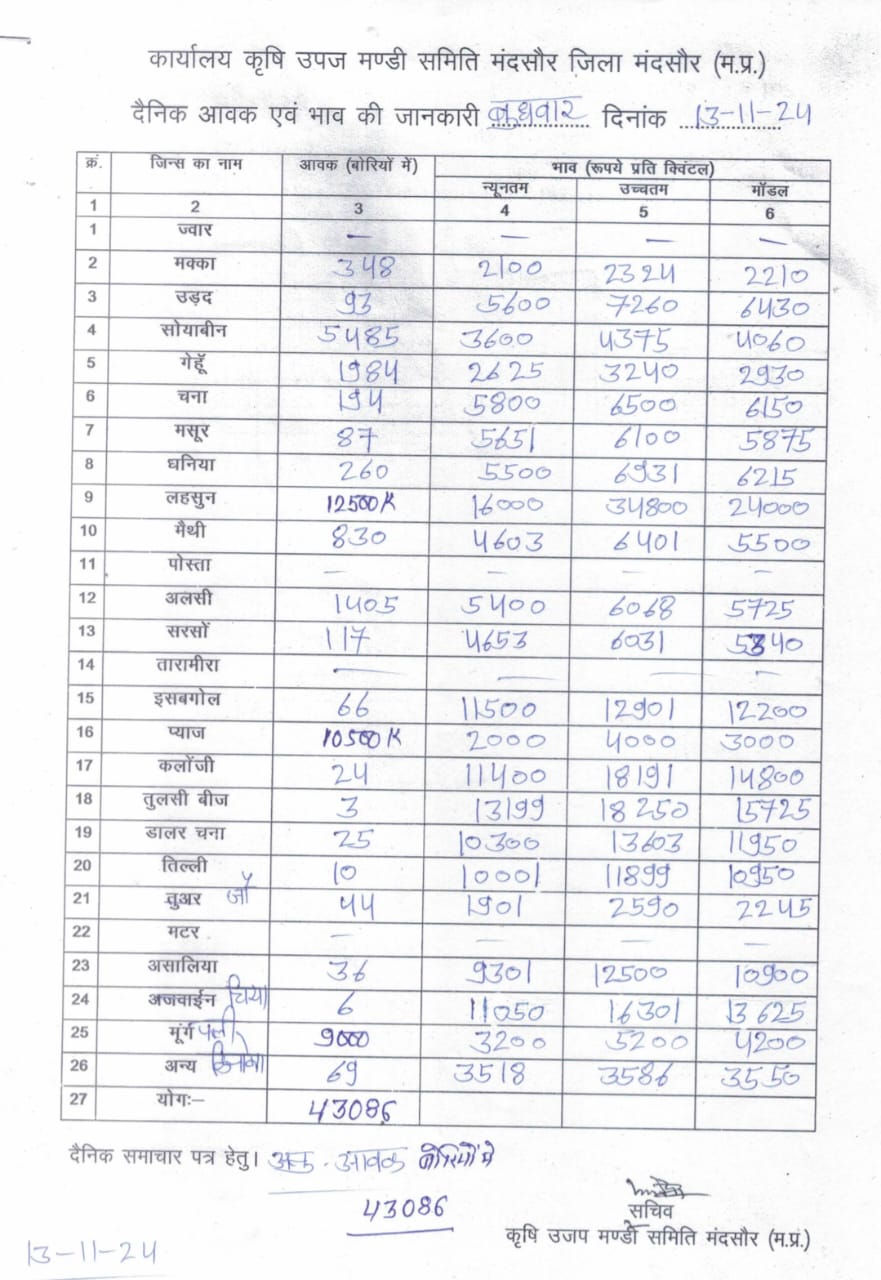 कार्यालय कृषि उपज मण्डी समिति मंदसौर जिला मंदसौर (म.प्र.)
दैनिक आवक एवं भाव की जानकारी बुधवार दिनांक 13-11-24
क्रं. जिन्स का नाम आवक (बोरियों में) भाव (रूपये प्रति क्विंटल)
न्यूनतम उच्चतम मॉडल
1 2 3 4 5 6
1 ज्वार — — — —
2 मक्का 348 2100 2324 2210
3 उड़द 93 5600 7260 6430
4 सोयाबीन 5485 3600 4375 4060
5 गेहूॅ 1984 2625 3240 2930
6 चना 194 5800 6500 6150
7 मसूर 87 5651 6100 5875
8 धनिया 260 5500 6931 6215
9 लहसुन 12500K 16000 34800 24000
10 मैथी 830 4603 6401 5500
11 पोस्ता — — — —
12 अलसी 1405 5400 6068 5725
13 सरसों 117 4653 6031 5340
14 तारामीरा — — — —
15 इसबगोल 66 11500 12901 12200
16 प्याज 10500K 2000 4000 3000
17 कलोंजी 24 11400 18191 14800
18 तुलसी बीज 3 13199 18250 15725
19 डालर चना 25 10300 13603 11950
20 तिल्ली 10 10001 11899 10950
21 तुअर जौ 44 1901 2590 2245
22 मटर — — — —
23 असालिया 36 9301 12500 10900
24 अजवाईन चिया 6 11050 16301 13625
25 मूंग फली 9000 3200 5200 4200
26 अन्य 69 3518 3586 3550
27 योगः– 43086
दैनिक समाचार पत्र हेतु। आवक बोरियों मे
43086
सचिव
कृषि उजप मण्डी समिति मंदसौर (म.प्रं.)
13-11-24